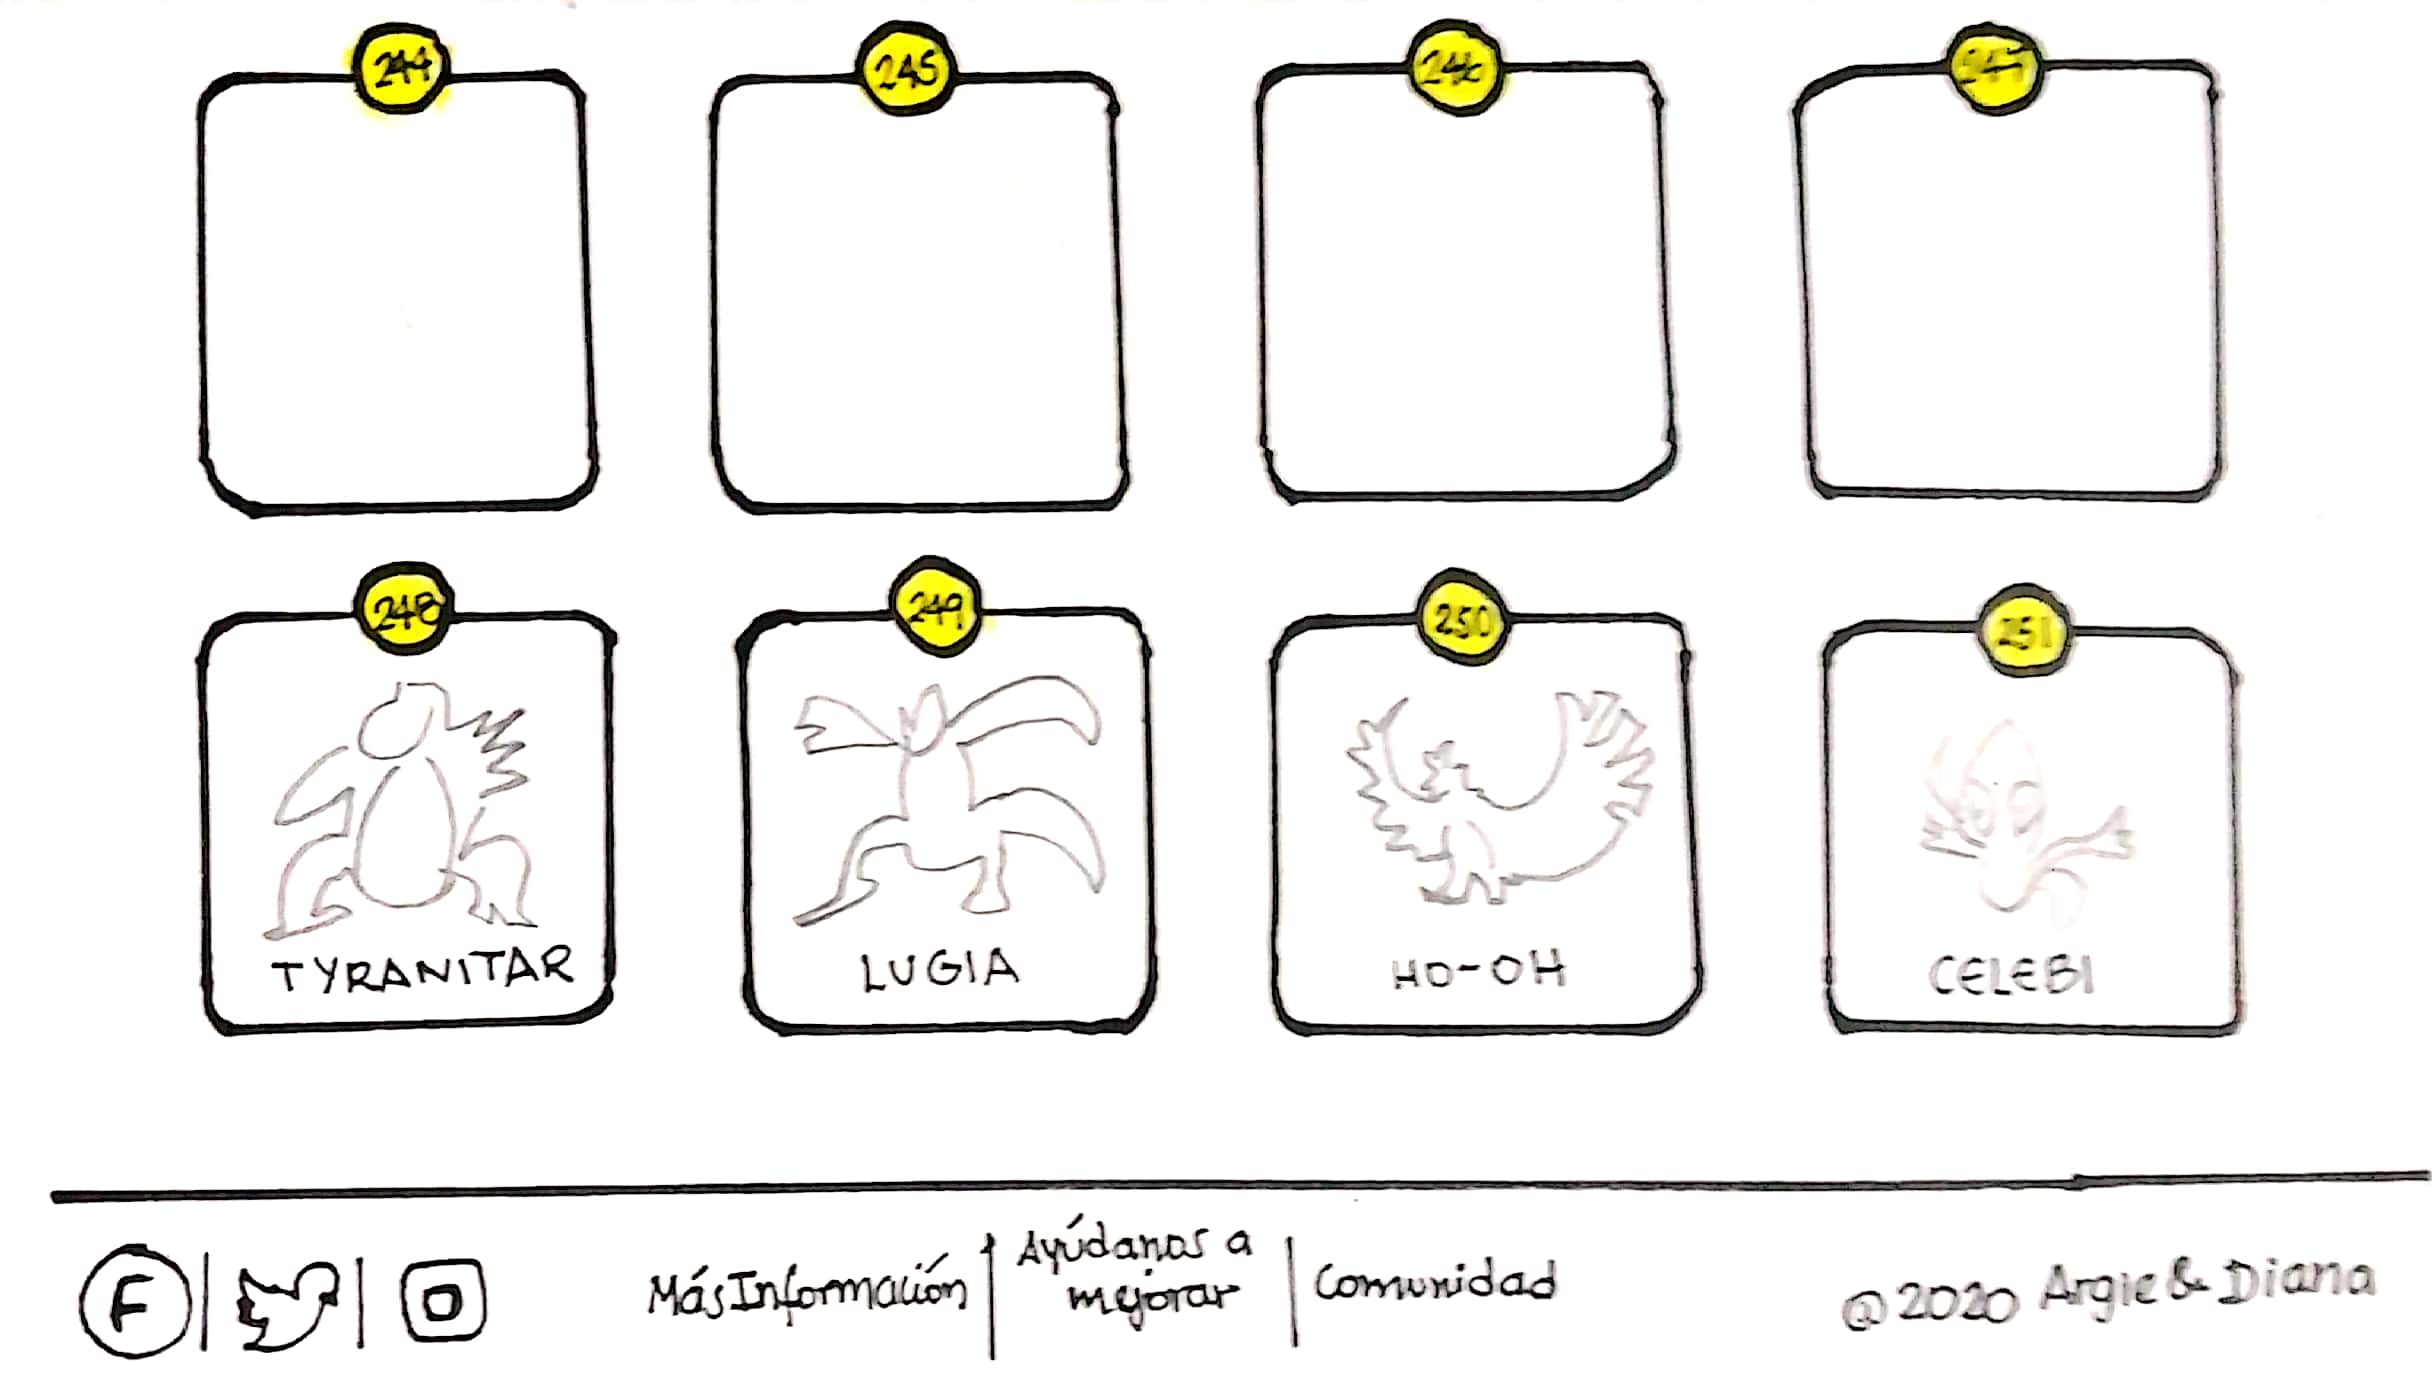 244 245 246 247
248 249 250 251
TYRANITAR LUGIA HO-OH CELEBI
F
MásInformación
Ayúdanos a
mejorar
Comunidad
@2020 Argie & Diana